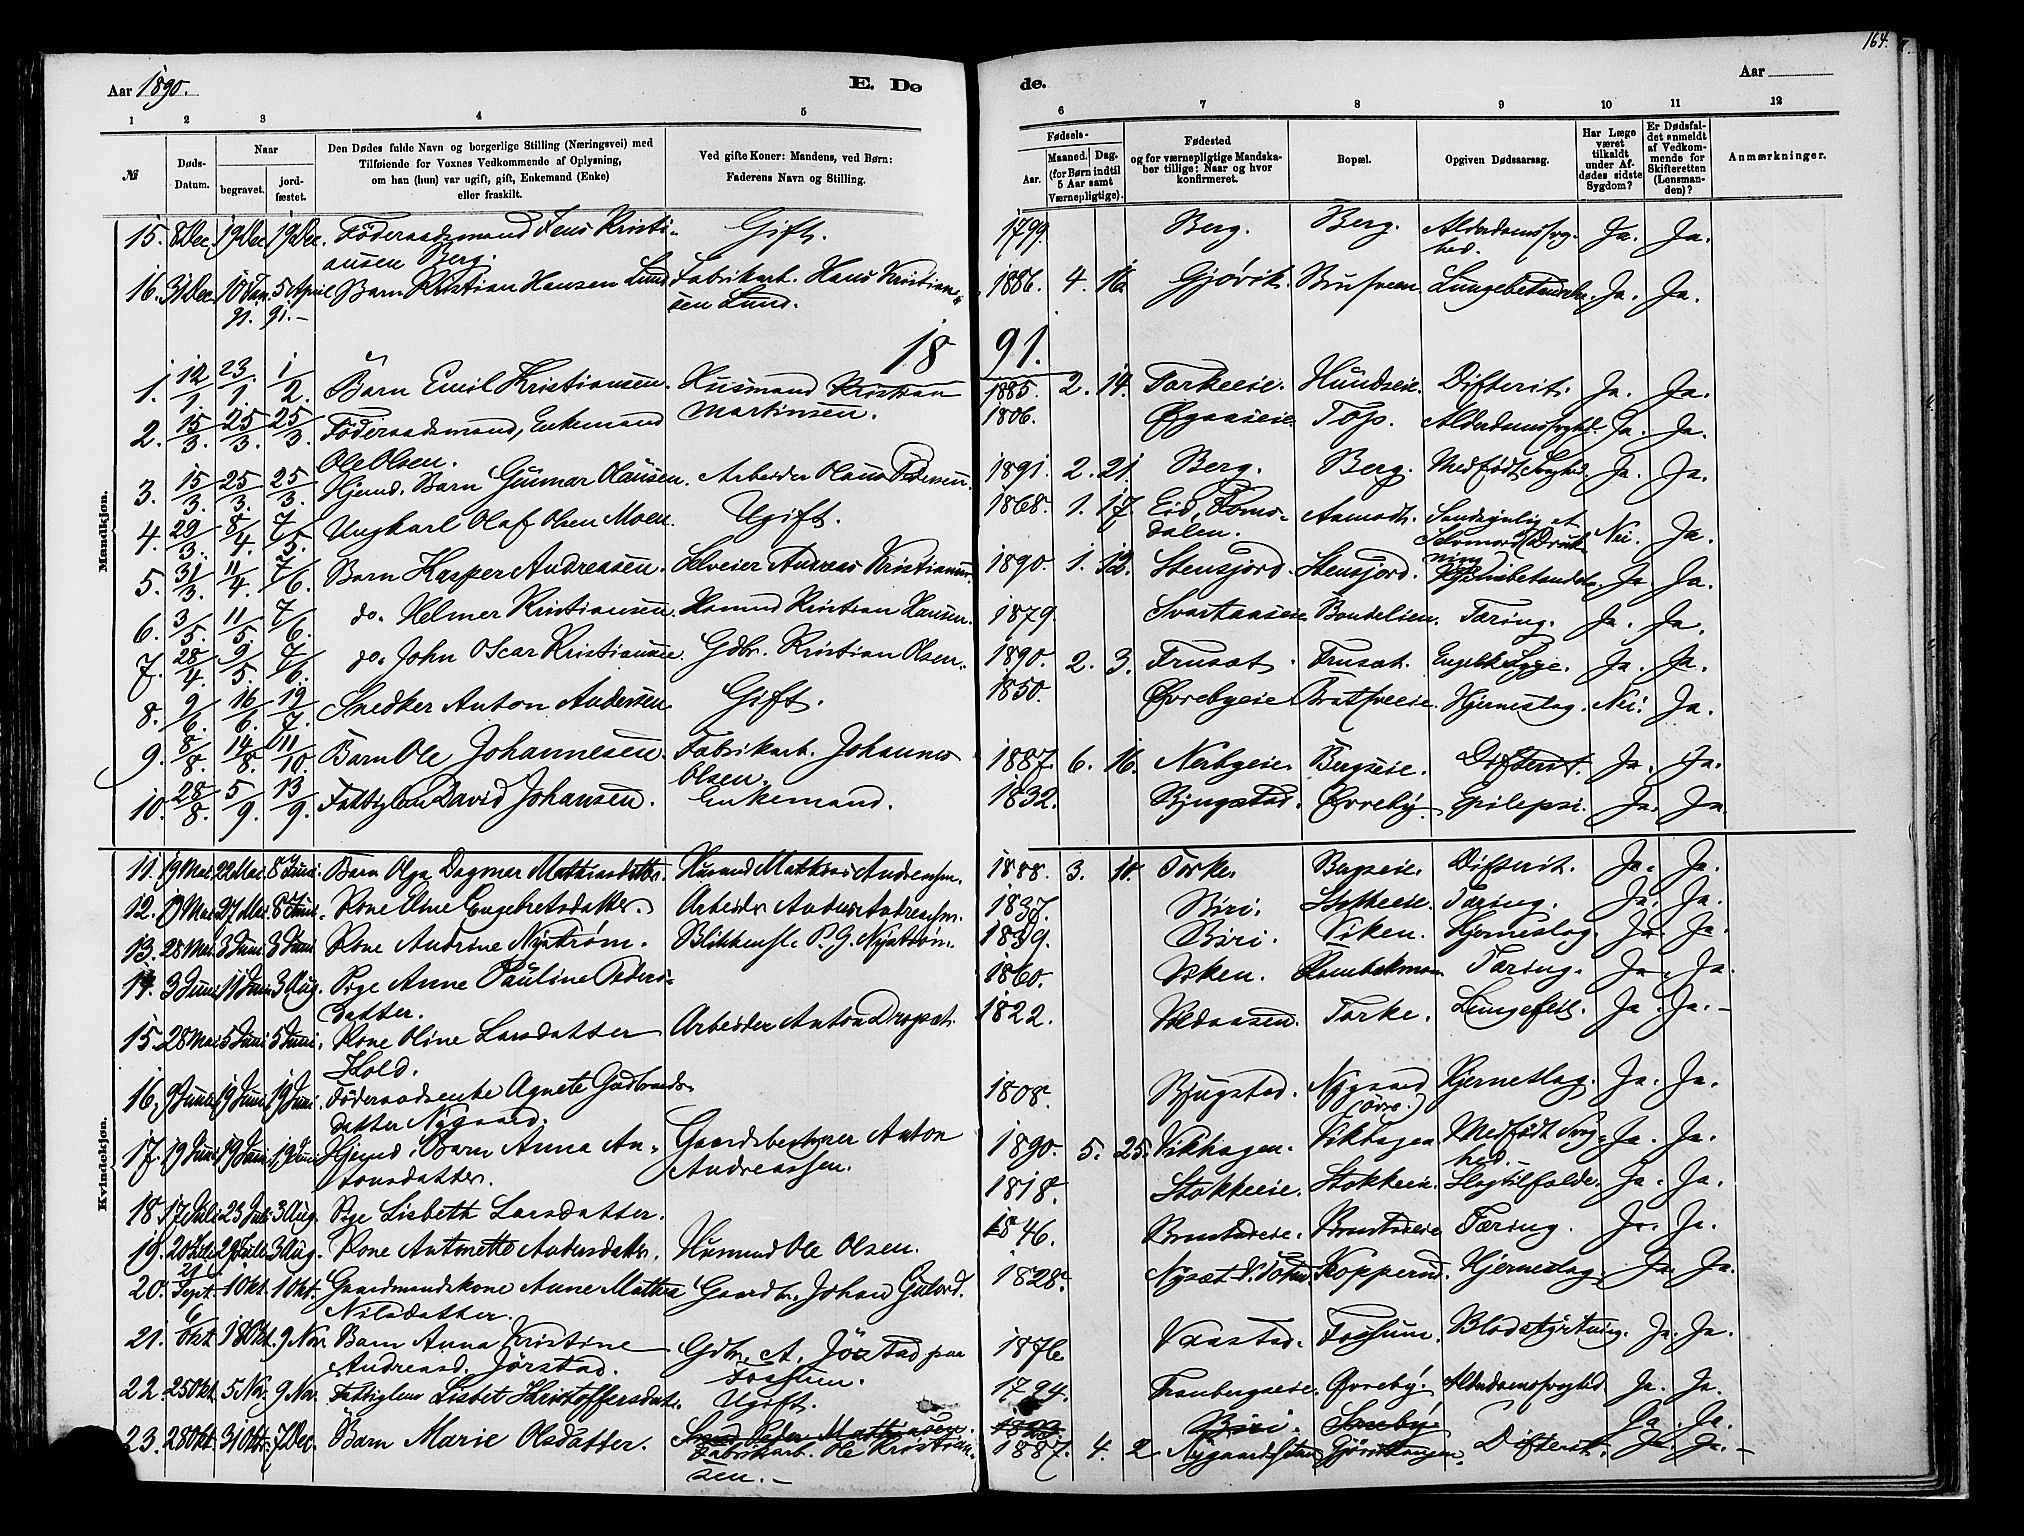 164.
Aar 1890.
E. Dø
de.
Aar
1 2 3 4 5 6 7 8 9 10 11 12
№
Døds-Datum.
Naar
begravet.
jord-fæstet.
Den Dødes fulde Navn og borgerlige Stilling (Næringsvei) med
Tilføiende for Voxnes Vedkommende af Oplysning,
om han (hun) var ugift, gift, Enkemand (Enke)
eller fraskilt.
Ved gifte Koner: Mandens, ved Børn:
Faderens Navn og Stilling.
Fødsels-
Aar.
Maaned. Dag.
(for Børn indtil
5 Aar samt
Værnepligtige).
Fødested
og for værnepligtige Mandska-
ber tillige: Naar og hvor
konfirmeret.
Bopæl.
Opgiven Dødsaarsag.
Har Læge
været
tilkaldt
under Af-
dødes sidste
Sygdom?
Er Dødsfal-
det anmeldt
af Vedkom-
mende for
Skifteretten
(Lensman-
den)?
Anmærkninger.
Mandkjøn.
15. 8 Dec 19 Dec 19 Dec. Föderaadsmand Jens Kristi-
ansen Berg. Gift. 1799. Berg. Berg. Alderdomssvag-
hed. Ja. Ja.
16. 31 Dec 10 Jan. 91. 5 April 91. Barn Kristian Hansen Lund Fabrikarb. Hans Kristian-
sen Lund. 1886. 4. 16 Gjøvik. Brusveen. Lungebetændelse. Ja. Ja.
1891.
1. 12/1. 23/1. 1/2. Barn Emil Kristiansen. Husmand Kristian
Martinsen. 1885. 2. 14. Torkeeie. Hundseie. Difterit. Ja. Ja.
2. 15/3. 25/3. 25/3. Föderaadsmand, Enkemand
Ole Olsen. 1806. Øgaaseie. Top. Alderdomssvaghed. Ja. Ja.
3. 15/3. 25/3. 25/3. Hjemd. Barn Gunnar Olausen. Arbeider Olaus Pedersen. 1891. 2. 21. Berg. Berg. Medfödt Svaghed. Ja. Ja.
4. 29/3. 8/4. 7/5. Ungkarl Olaf Olsen Moen. Ugift. 1868. 1. 17 Eid, Roms-
dalen. Aamodt. Sandsynlig et
Selvmord (Druk-
ning) Nei. Ja.
5. 31/3. 11/4. 7/6. Barn Kasper Andreassen. Selveier Andreas Kristiansen. 1890. 1. 13. Stensjord. Stensjord. Ja. Ja.
6. 3/5. 11/5. 7/6. do. Helmer Kristiansen. Husmd Kristian Hansen. 1879. Svartaaseie Bondelien. Tæring. Ja. Ja.
7. 28/4. 9/5. 7/6. do. John Oscar Kristiansen. Gdbr. Kristian Olsen. 1890. 2. 3. Frusat. Frusat. Engelsk Syge. Ja. Ja.
8. 9/6. 16/6. 19/7. Snedker Anton Andersen. Gift. 1850. Øvrebyeie Bratsveeie. Hjerneslag. Nei. Ja.
9. 8/8. 14/8. 11/10. Barn Ole Johannesen. Fabrikarb. Johannes
Olsen. 1887. 6. 16. Nerbyeie. Bergseie. Difterit. Ja. Ja.
10. 28/8. 5/9. 13/9. Fattiglem David Johansen. Enkemand. 1832. Bjugstad. Øvreby. Epilepsi. Ja. Ja.
Kvindekjøn.
11. 19 Mai 22 Mai. 8 Juni. Barn Olga Dagmar Mathiasdatter. Husmd Mathias Andreassen. 1888. 3. 10. Torke. Bergseie. Difterit. Ja. Ja.
12. 19 Mai 27 Mai. 8 Juni. Kone Eline Engebretsdatter. Arbeider Anders Andreassen. 1837. Biri. Stokkeeie. Tæring. Ja. Ja.
13. 28 Mai 3 Juni 3 Juni Kone Andrine Nystrøm. Blikkensl. P. G. Nystrøm. 1839. Biri. Viken. Hjerneslag. Ja. Ja.
14. 3 Juni 11 Juni 3 Aug. Pige Anne Pauline Peders-
datter. 1860. Viken. Tæring. Ja. Ja.
15. 28 Mai 5 Juni 5 Juni. Kone Oline Larsdatter
Hold. Arbeider Anton Dropet. 1822. Voldaasen. Torke. Lungefeil. Ja. Ja.
16. 9 Juni 19 Juni 19 Juni. Föderaadsenke Agnete Gudbrands-
datter Nygaard. 1808. Bjugstad. Nygaard
(övre.) Hjerneslag. Ja. Ja.
17. 19 Juni 19 Juni 19 Juni Hjemd. Barn Anna An-
tonsdatter. Gaardsbestyrer Anton
Andreassen. 1890. 5. 25. Vikhagen. Vikhagen Medfödt Svag-
hed. Ja. Ja.
18. 17 Juli 23 Juli 3 Aug. Pige Lisbeth Larsdatter. 1818. Stokkeeie. Stokkeeie. Slagtilfælde. Ja. Ja.
19. 20 Juli 29 Juli 3 Aug. Kone Antonette Andersdatter. Husmand Ole Olsen. 1846. Bratsveeie. Bratsveeie Tæring. Ja. Ja.
20. 21 Sept. 1 Okt. 1 Okt. Gaardmandskone Anne Mathea
Nilsdatter. Gaardbr. Johan Gulord. 1828. Nysæt V. Toten Kopperud. Hjerneslag. Ja. Ja.
21. 6 Okt. 18 Okt. 9 Nov. Barn Anna Kristine
Andreasd. Jörstad. Gdbr. A. Jörstad paa
Fossum. 1876 Vaastad. Fossum. Blodstyrtning. Ja. Ja.
22. 25 Okt. 5 Nov. 9 Nov. Fattiglem Lisbet Kristoffersdat. Ugift. 1794. Tranbergseie. Øvreby. Alderdomssvaghed Ja. Ja.
Biri. Ja. Ja.
23. 28 Okt. 31 Okt. 7 Dec. Barn Marie Olsdatter. Fabrikarb. Ole Kristian-
sen. 1887. 4. 2 Difterit. Ja. Ja.